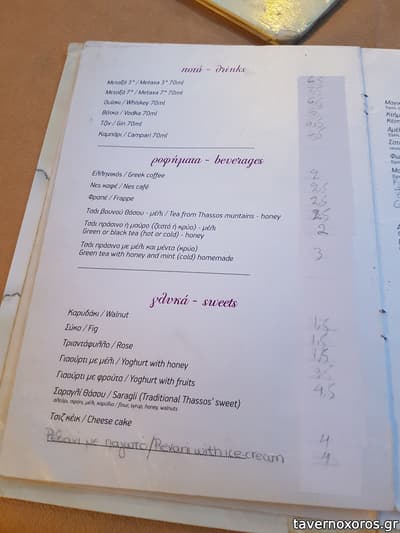 ποτά - drinks
Μεταξά 3* / Metaxa 3* 70ml
Μεταξά 7* / Metaxa 7* 70ml
Ουίσκι / Whiskey 70ml
Βότκα / Vodka 70ml
Τζιν / Gin 70ml
Καμπάρι / Campari 70ml
ροφήματα - beverages
Ελληνικός / Greek coffee 2
Νες καφέ / Nes café 2,5
Φραπέ / Frappe 2,5
Τσάι βουνού Θάσου - μέλι / Tea from Thassos muntains - honey 2,5
Τσάι πράσινο ή μαύρο (ζεστό ή κρύο) - μέλι 2
Green or black tea (hot or cold) - honey
Τσάι πράσινο με μέλι και μέντα (κρύο) 3
Green tea with honey and mint (cold) homemade
γλυκά - sweets
Καρυδάκι / Walnut 1,5
Σύκο / Fig 1,5
Τριαντάφυλλο / Rose 1,5
Γιαούρτι με μέλι / Yoghurt with honey
Γιαούρτι με φρούτα / Yoghurt with fruits 4,5
Σαραγλί Θάσου / Saragli (Traditional Thassos' sweet)
αλεύρι, σιρόπι, μέλι, καρύδια / flour, syrup, honey, walnuts
Τσιζ κέικ / Cheese cake 4
Ρεβανί με παγωτό / Revani with ice cream 4
tavernoxoros.gr